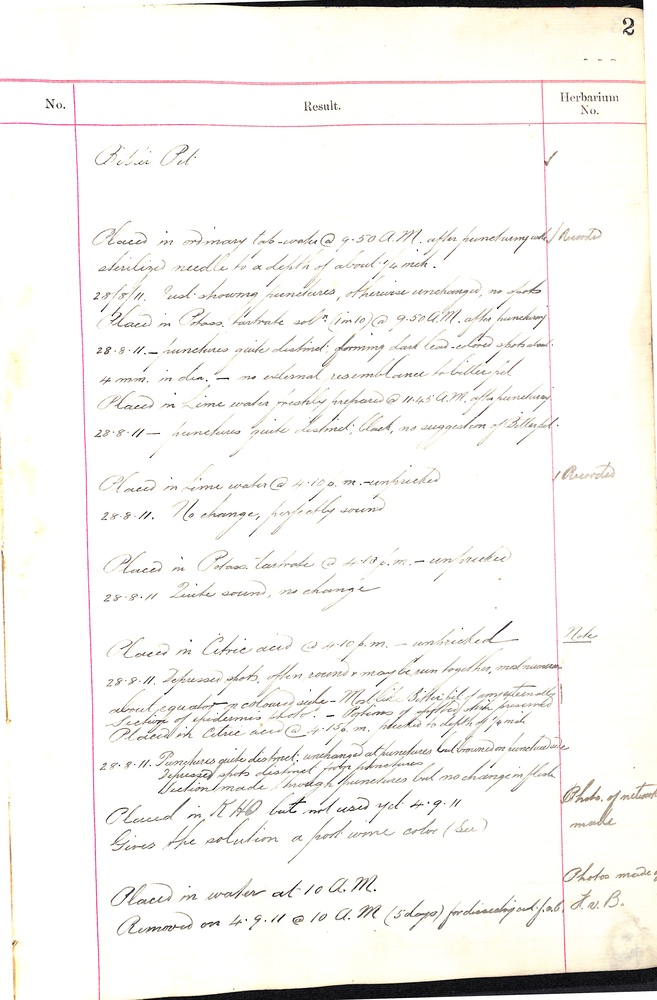 2
No.
Result.
Herbarium No.
Bitter Pit 1
Placed in ordinary tap-water @ 9.50 A.M. after puncturing with 1 Recorded
sterilized needle to a depth of about 1/4 inch.
28/8/11. Just showing punctures, otherwise unchanged, no spots
Placed in Potass. tartrate soln. (1 in 10) @ 9.50 A.M. after puncturing
28.8.11. — punctures quite distinct: forming dark lead-colored spots about
4 mm. in dia. — no external resemblance to bitter pit
Placed in Lime water freshly prepared @ 11.45 A.M. after puncturing
28.8.11 — punctures quite distinct, black, no suggestion of Bitter pit.
Placed in Lime water @ 4.10 p.m. - unpricked 1 Recorded
28.8.11. No change, perfectly sound
Placed in Potass. tartrate @ 4.10 p.m. — unpricked
28.8.11 Quite sound, no change
Placed in Citric acid @ 4.10 p.m. — unpricked Note
28.8.11. Depressed spots, often round & may be run together, most numerous
about equator on coloured side — Most like Bitter pit of any externally
Section of epidermis photo. — Portions of skin preserved
Placed in Citric acid @ 4.15 p.m. pricked to depth of 1/4 inch
28.8.11. Punctures quite distinct; unchanged at punctures but browned on punctured side
Depressed spots distinct from punctures
Section made through punctures but no change in flesh
Placed in KHO but not used yet 4.9.11 Photo. of network
Gives the solution a port wine color (See) made
Placed in water at 10 A.M. Photos made
Removed on 4.9.11 @ 10 A.M. (5 days) for dissecting out f.v.b. F.v.B.